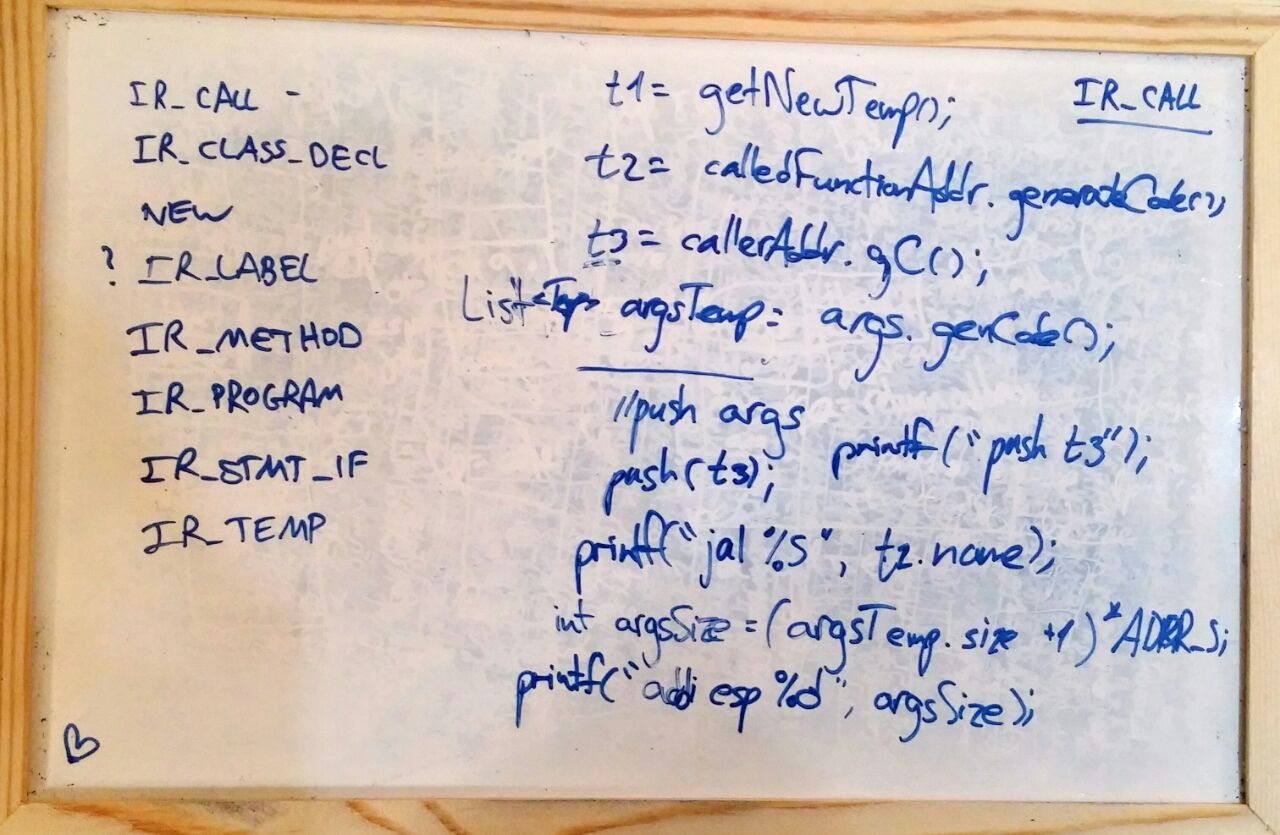 IR_CALL -
IR_CLASS_DECL
NEW
? IR_LABEL
IR_METHOD
IR_PROGRAM
IR_STMT_IF
IR_TEMP
IR_CALL
t1 = getNewTemp();
t2 = calledFunctionAddr.generateCode();
t3 = callerAddr.gC();
List<Temp> argsTemp = args.genCode();
//push args
push(t3); printf("push t3");
printf("jal %s", t2.name);
int argsSize = (argsTemp.size +1)*ADDR_S;
printf("addi esp %d", argsSize);